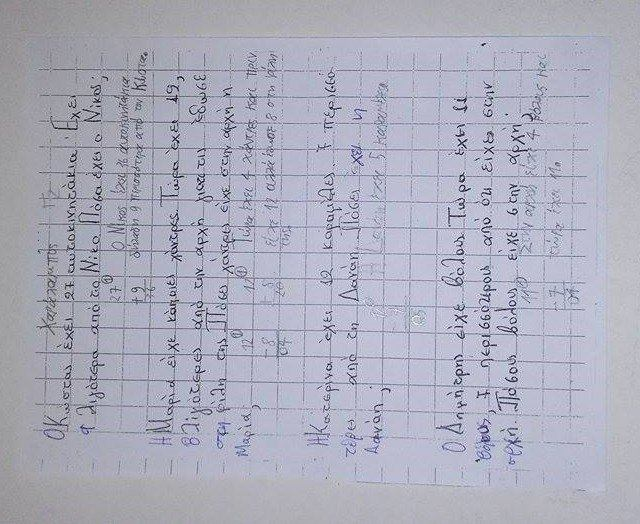 Χαράλαμπος
Ο Κώστας έχει 27 αυτοκινητάκια. Έχει
9 λιγότερα από το Νίκο. Πόσα έχει ο Νίκος;
27
+ 9
36
Ο Νίκος έχει 36 αυτοκινητάκια
δηλαδή 9 περισσότερα από τον Κώστα.
Η Μαρία είχε κάποιες χάντρες. Τώρα έχει 12,
8 λιγότερες από την αρχή γιατί τις έδωσε
στη φίλη της. Πόσες χάντρες είχε στην αρχή η
Μαρία;
12
- 8
04
12
+ 8
20
Τώρα έχει 4 χάντρες και πριν
είχε 12 αλλά έδωσε 8 στη φίλη
της
Η Κατερίνα έχει 12 καραμέλες, 7 περισσό
τερες από τη Δανάη. Πόσες έχει η
Δανάη;
- 7
05
έχει 5 καραμέλες
Ο Δημήτρης είχε βόλους. Τώρα έχει 11
βόλους, 7 περισσότερους από ότι είχε στην
αρχή. Πόσους βόλους είχε στην αρχή;
11
- 7
04
Στην αρχή είχε 4 βόλους και
τώρα έχει 11.